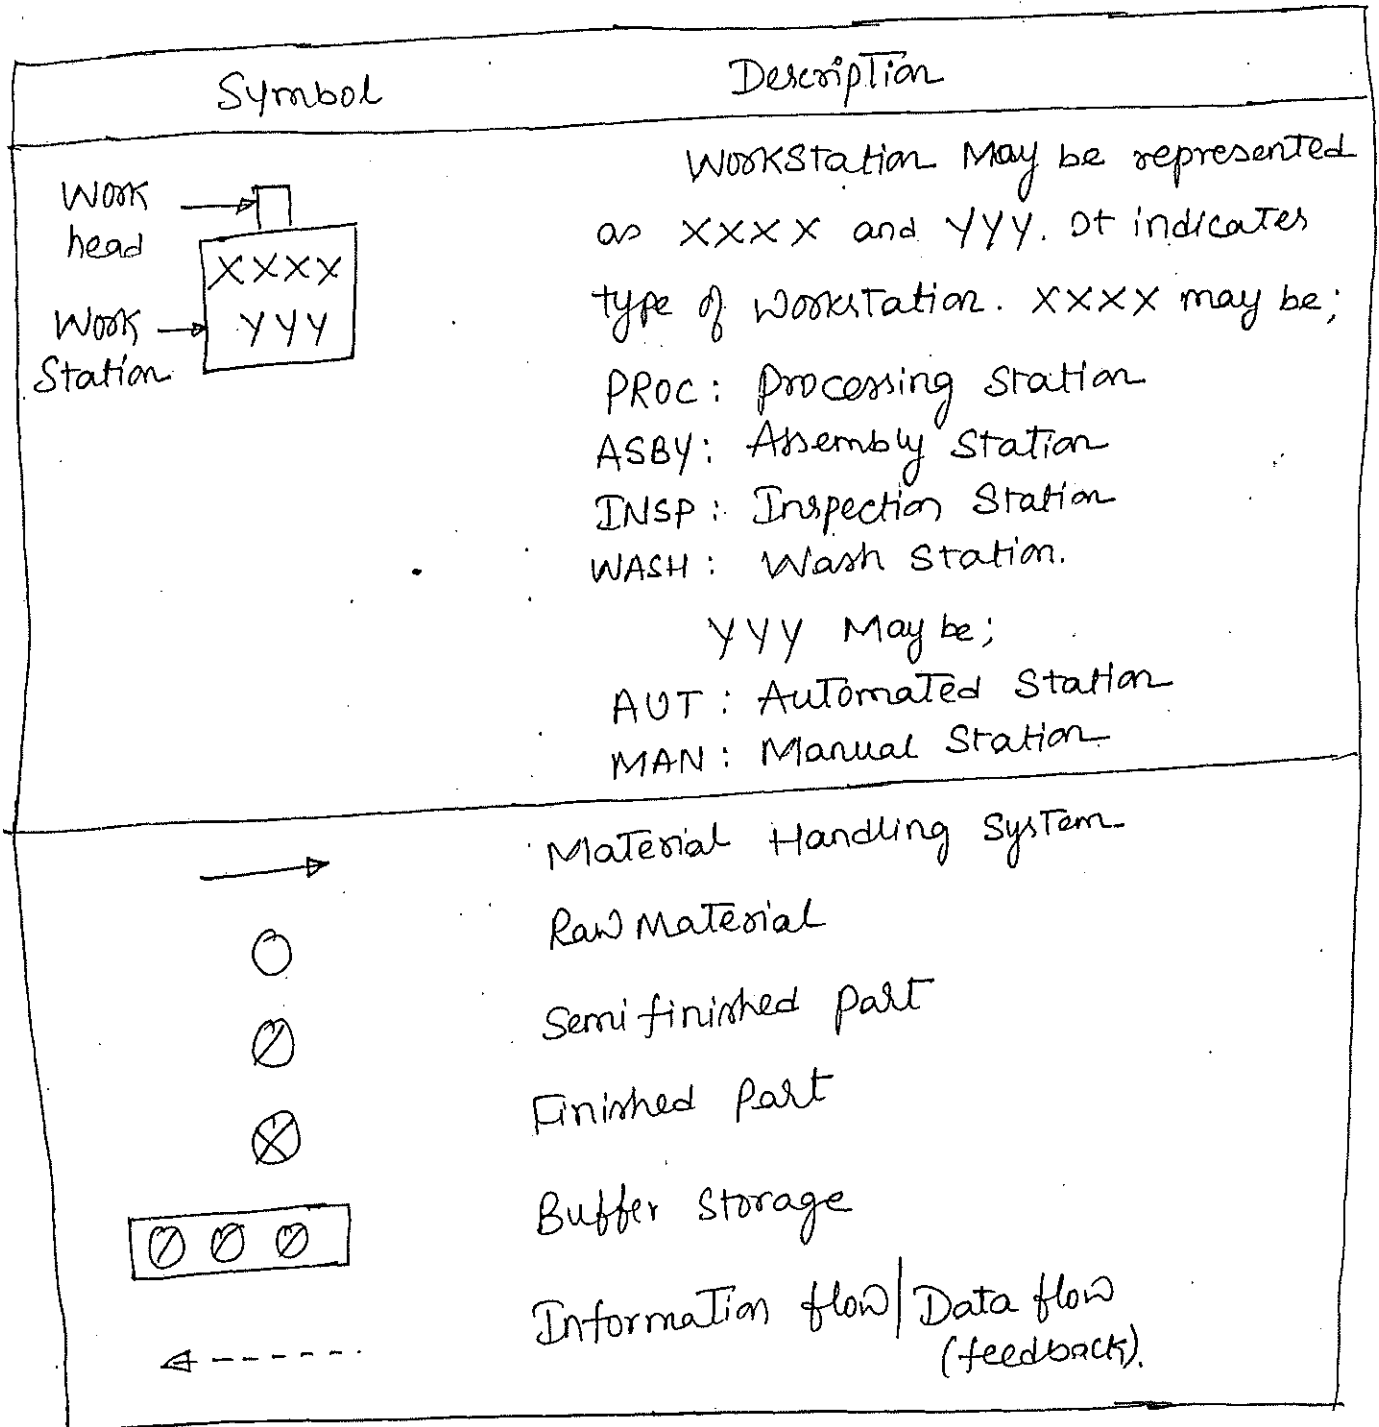 Symbol Description
Work head
XXXX
Work Station
YYY
Workstation May be represented
as XXXX and YYY. It indicates
type of workstation. XXXX may be;
PROC: Processing Station
ASBY: Assembly Station
INSP: Inspection Station
WASH: Wash Station.
YYY May be;
AUT: Automated Station
MAN: Manual Station
Material Handling System
Raw Material
Semi finished part
Finished Part
Buffer Storage
Information flow/Data flow
(feedback).